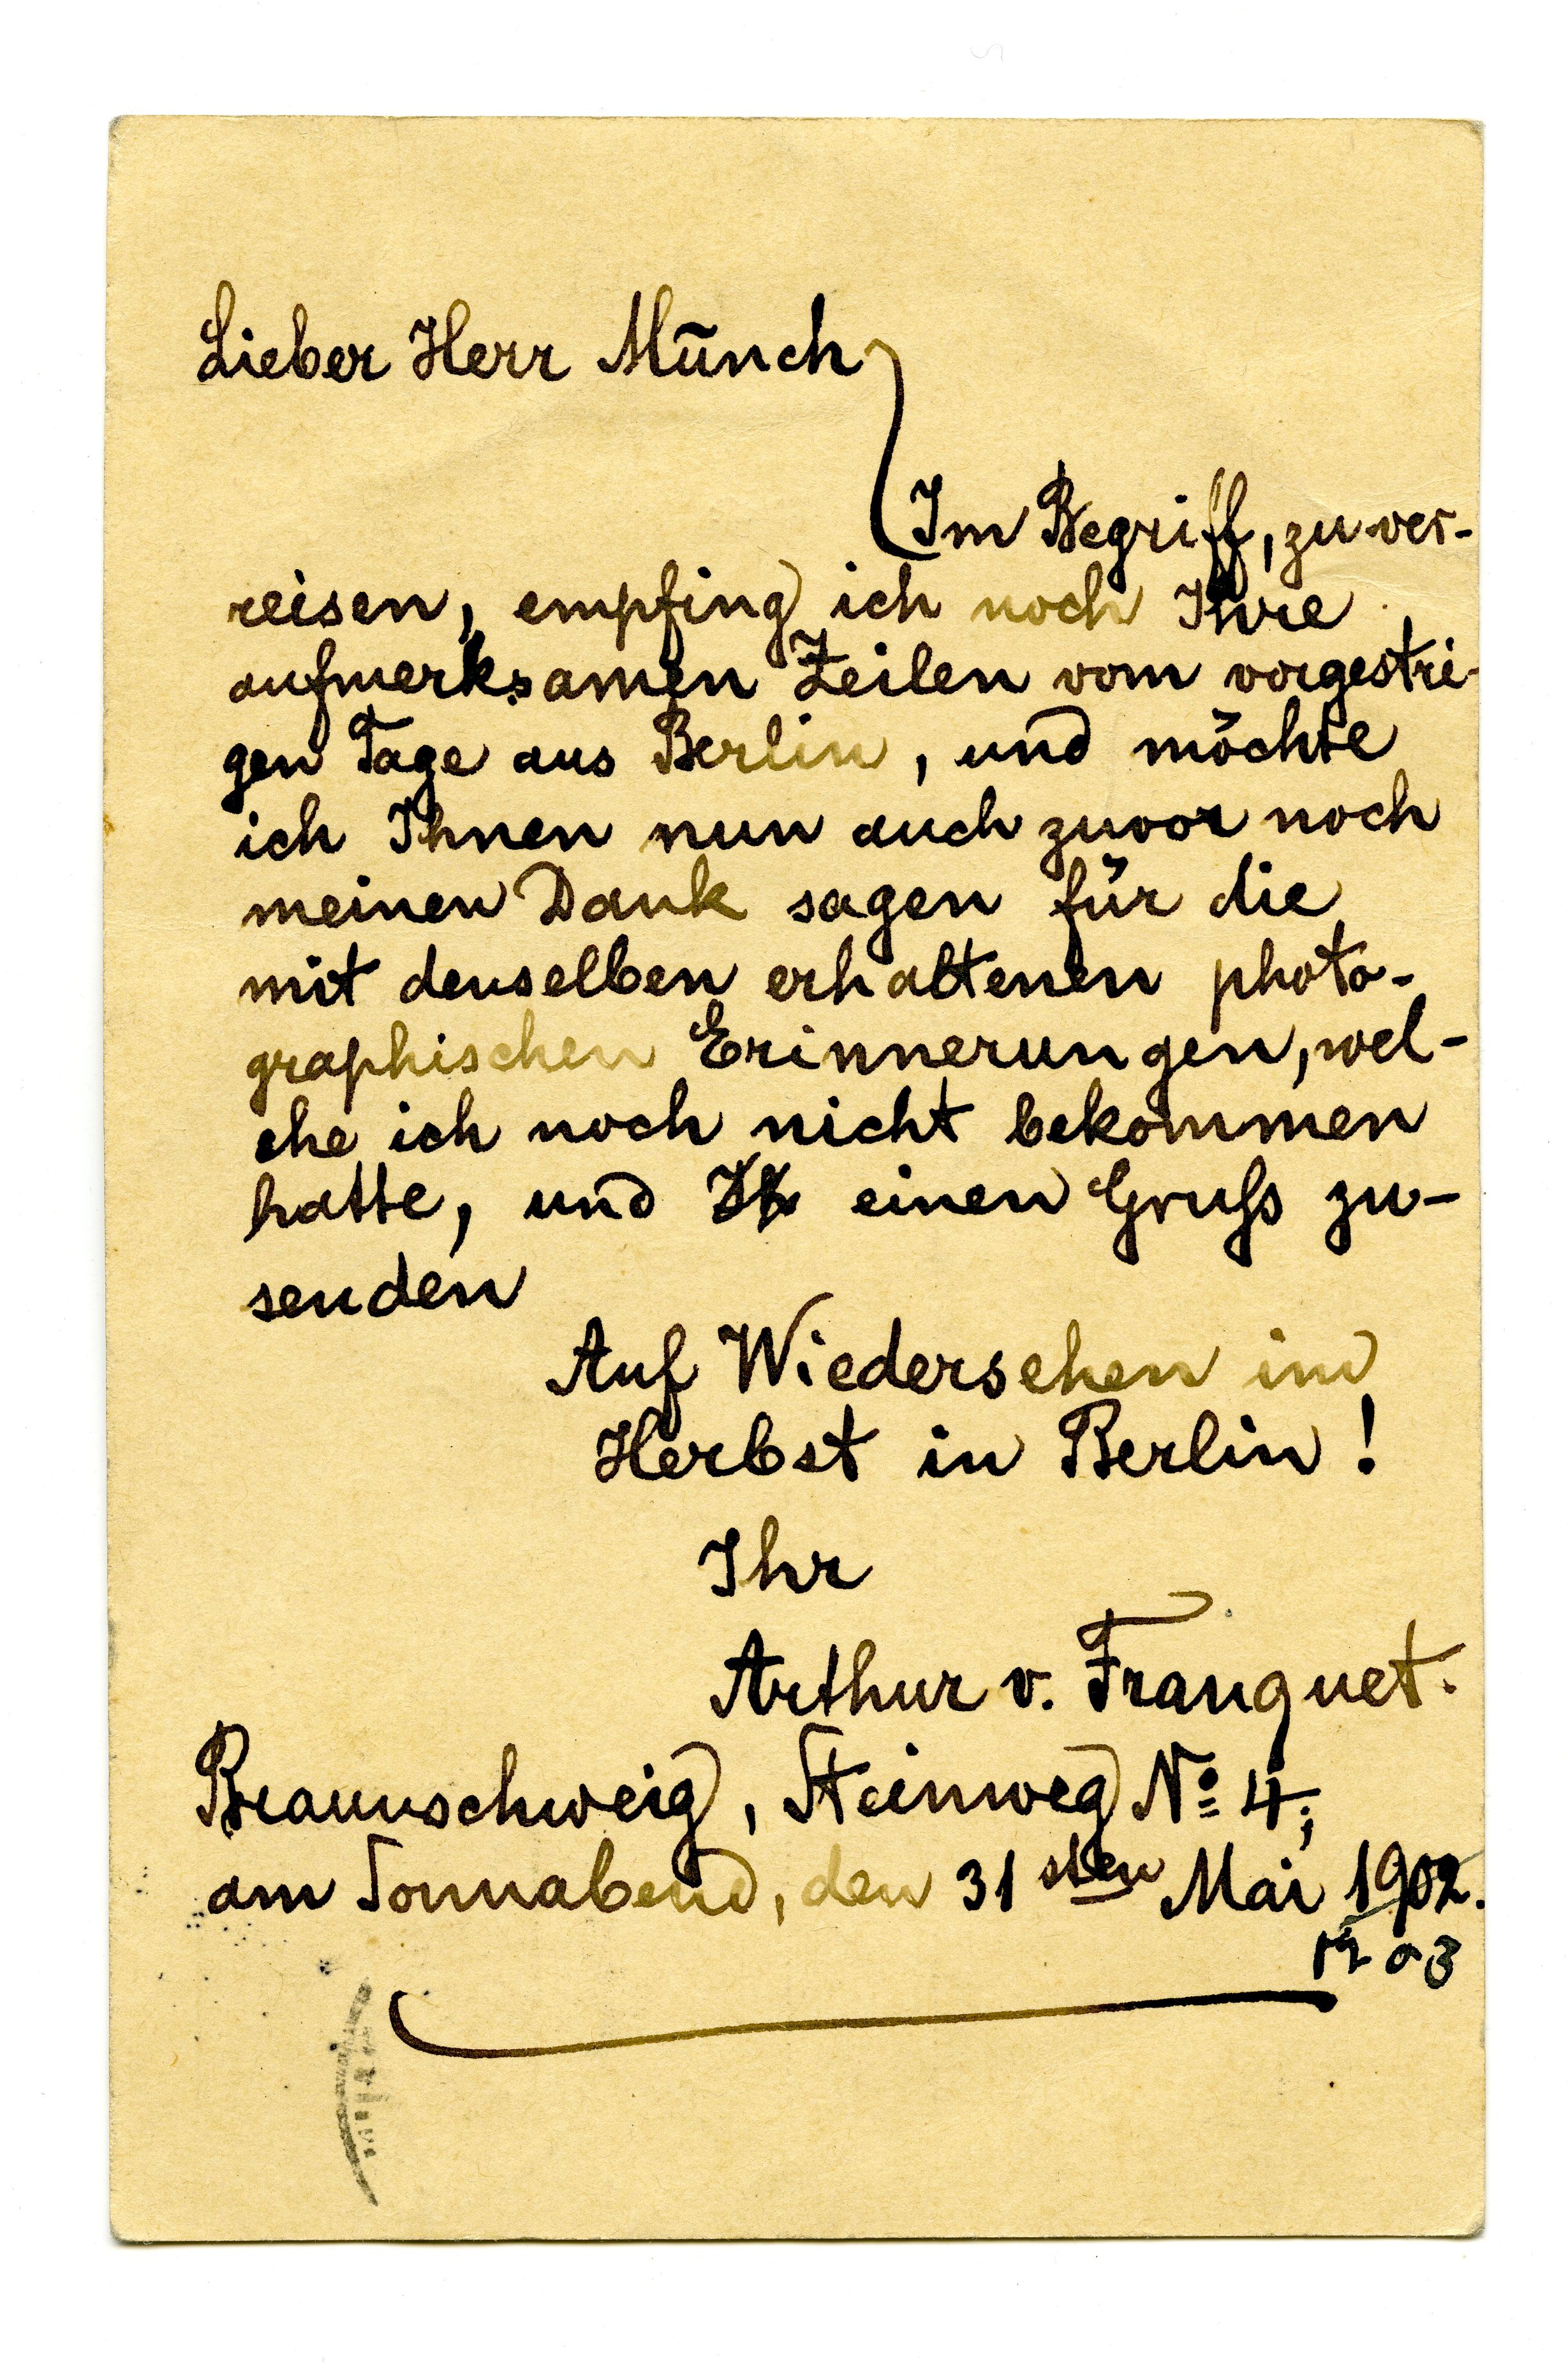 Lieber Herr Münch
Im Begriff, zu ver-
reisen, empfing ich noch Ihre
aufmerksamen Zeilen vom vorgestri-
gen Tage aus Berlin, und möchte
ich Ihnen nun auch zuvor noch
meinen Dank sagen für die
mit denselben erhaltenen photo-
graphischen Erinnerungen, wel-
che ich noch nicht bekommen
hatte, und einen Gruss zu-
senden
Auf Wiedersehen im
Herbst in Berlin!
Ihr
Arthur v. Franquet.
Braunschweig, Steinweg No 4;
am Sonnabend, den 31sten Mai 1902.
03